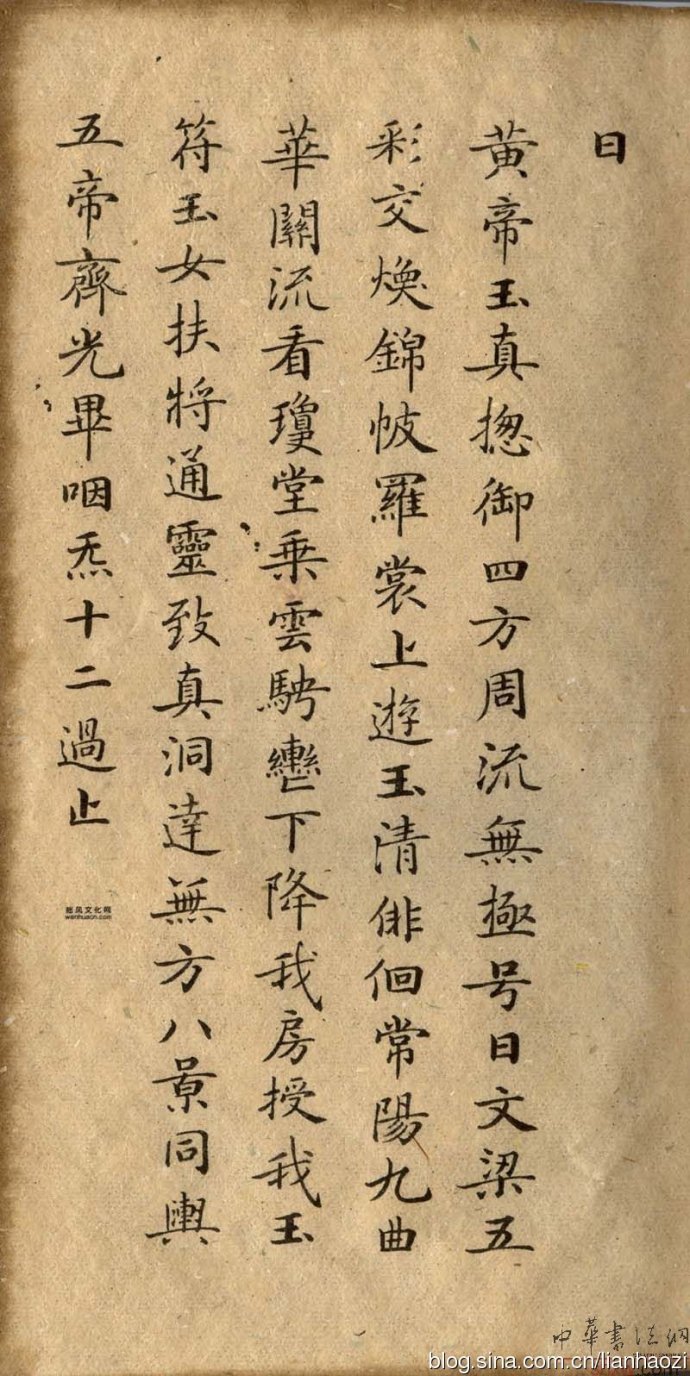 曰
黄帝玉真揔御四方周流無極号曰文梁五
彩交煥錦帔羅裳上遊玉清俳佪常陽九曲
華關流看瓊堂乗雲駚轡下降我房授我玉
符玉女扶將通靈致真洞達無方八景同輿
五帝齊光畢咽炁十二過止
wenhuacn.com
中華書法網
blog.sina.com.cn/lianhaozi